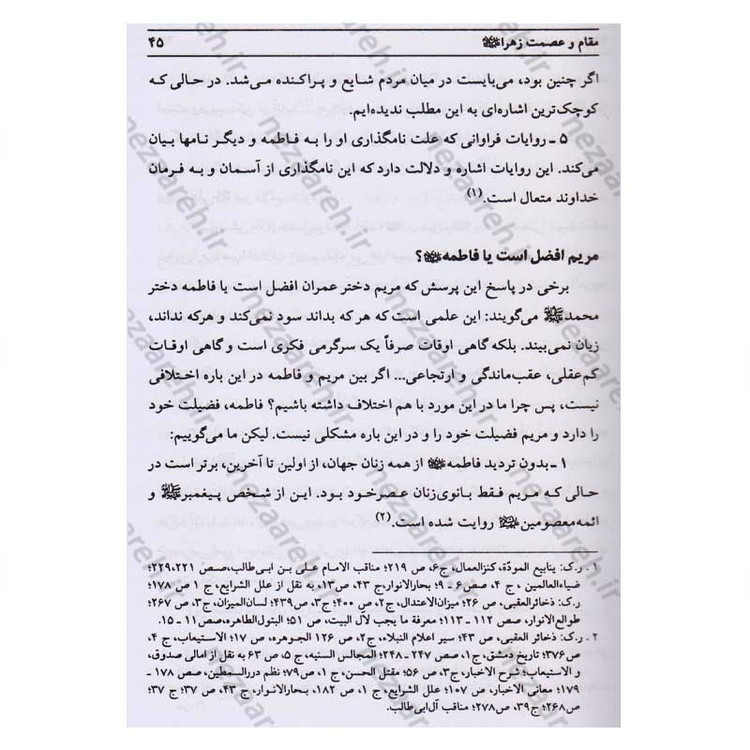 مقام و عصمت زهرا ۴۵
اگر چنین بود، می‌بایست در میان مردم شایع و پراکنده می‌شد. در حالی که
کوچک‌ترین اشاره‌ای به این مطلب ندیده‌ایم.
۵ ـ روایات فراوانی که علت نامگذاری او را به فاطمه و دیگر نامها بیان
می‌کند. این روایات اشاره و دلالت دارد که این نامگذاری از آسمان و به فرمان
خداوند متعال است.(۱)
مریم افضل است یا فاطمه؟
برخی در پاسخ این پرسش که مریم دختر عمران افضل است یا فاطمه دختر
محمدﷺ می‌گویند: این علمی است که هر که بداند سود نمی‌کند و هرکه نداند،
زیان نمی‌بیند. بلکه گاهی اوقات صرفاً یک سرگرمی فکری است و گاهی اوقات
کم‌عقلی، عقب‌ماندگی و ارتجاعی... اگر بین مریم و فاطمه در این باره اختلافی
نیست، پس چرا ما در این مورد با هم اختلاف داشته باشیم؟ فاطمه، فضیلت خود
را دارد و مریم فضیلت خود را و در این باره مشکلی نیست. لیکن ما می‌گوییم:
۱ ـ بدون تردید فاطمه از همه زنان جهان، از اولین تا آخرین، برتر است در
حالی که مریم فقط بانوی زنان عصر خود بود. این از شخص پیغمبرﷺ و
ائمه معصومین روایت شده است.(۲)
۱ . ر.ک: ینابیع المودّة، کنزالعمال، ج۶، ص ۲۱۹؛ مناقب الامام علی بن ابی‌طالب، صص ۲۲۹،۲۲۱؛
ضیاءالعالمین ، ج ۴، صص۶ ـ ۹؛ بحارالانوار، ج ۴۳، ص۱۳، به نقل از علل الشرایع، ج ۱ ص ۱۷۸؛
ر.ک: ذخائرالعقبی، ص ۲۶؛ میزان‌الاعتدال، ج۲، ص ۴۰۰؛ ج۳، ص۴۳۹؛ لسان‌المیزان، ج۳، ص ۲۶۷؛
طوالع‌الانوار، صص ۱۱۲ ـ ۱۱۳؛ معرفة ما یجب لآل البیت، ص ۵۱؛ البتول‌الطاهره، صص۱۱ ـ ۱۵.
۲ . ر.ک: ذخائر العقبی، ص ۴۳؛ سیر اعلام النبلاء، ج۲، ص ۱۲۶ الجوهره، ص ۱۷؛ الاستیعاب، ج ۴،
ص۳۷۶؛ تاریخ دمشق، ج ۱، صص ۲۴۷ ـ ۲۴۸؛ المجالس السنیه، ج ۵، ص ۶۳ به نقل از امالی صدوق،
و الاستیعاب؛ شرح الاخبار، ج۳، ص ۵۶؛ مقتل الحسن، ج ۱، ص ۷۹؛ نظم دررالسمطین، صص ۱۷۸ ـ
۱۷۹؛ معانی الاخبار، ص ۱۰۷؛ علل الشرایع، ج ۱، ص ۱۸۲، بحارالانوار، ج ۴۳، ص ۳۷؛ ج ۳۷؛
ص۲۶۸؛ ج۳۹، ص۲۷۸؛ مناقب آل‌ابی‌طالب.
nezaareh.ir